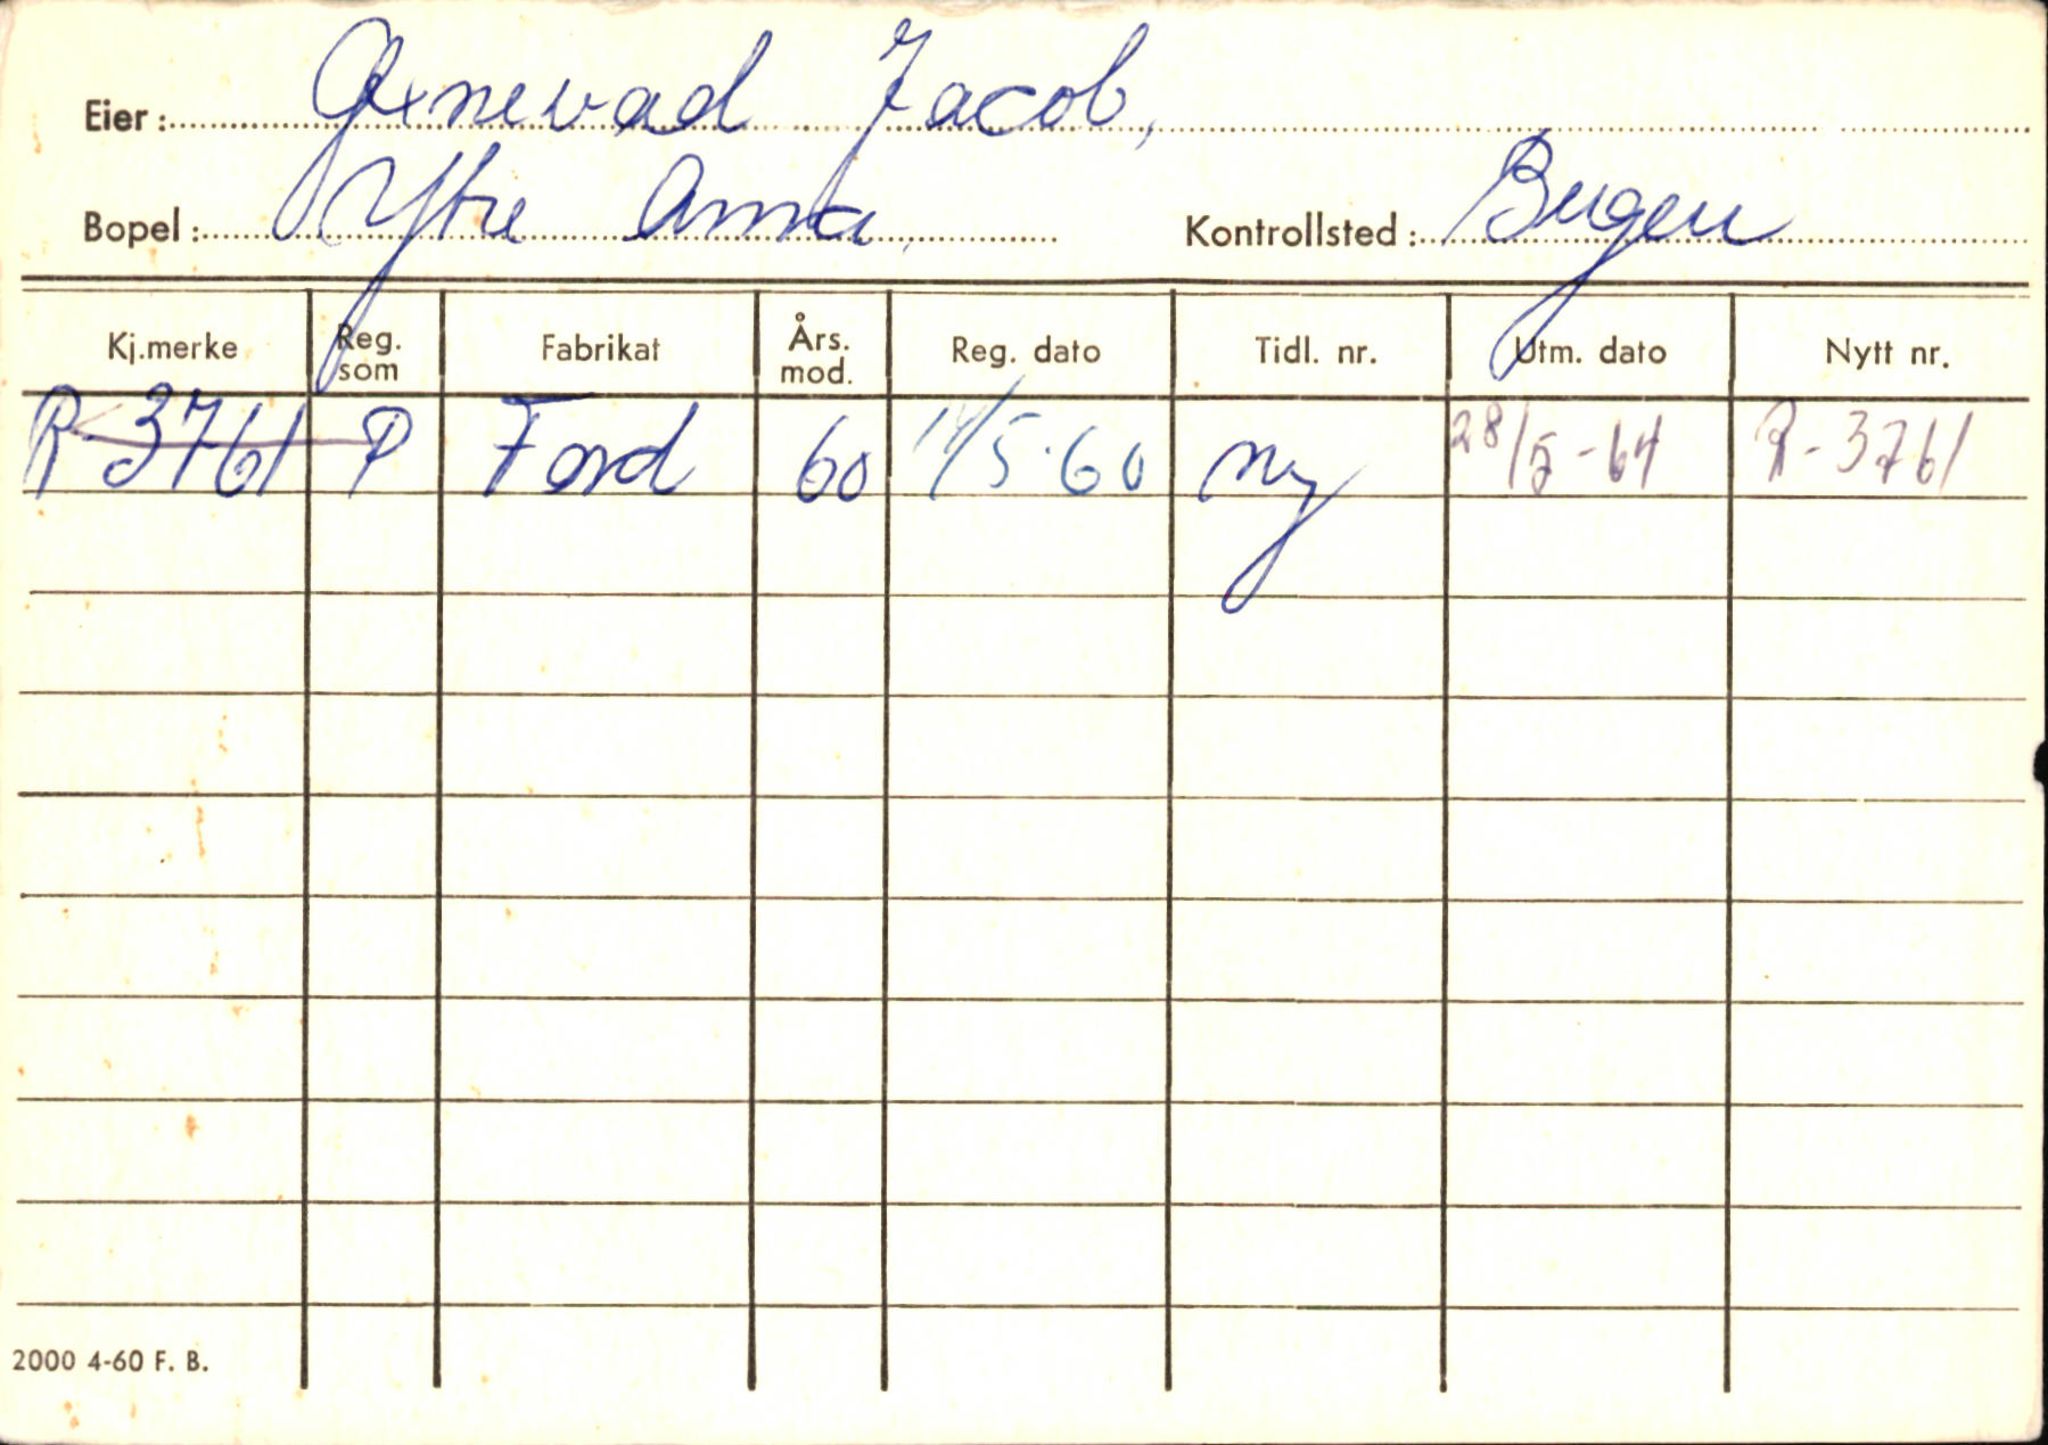 Eier: Grnevad Jacob,
Bopel: Ytre Arna. Kontrollsted: Bergen
Kj.merke Reg. som Fabrikat Års. mod. Reg. dato Tidl. nr. Utm. dato Nytt nr.
R-3761 P Ford 60 14/5-60 ny 28/5-64 R-3761
2000 4-60 F. B.